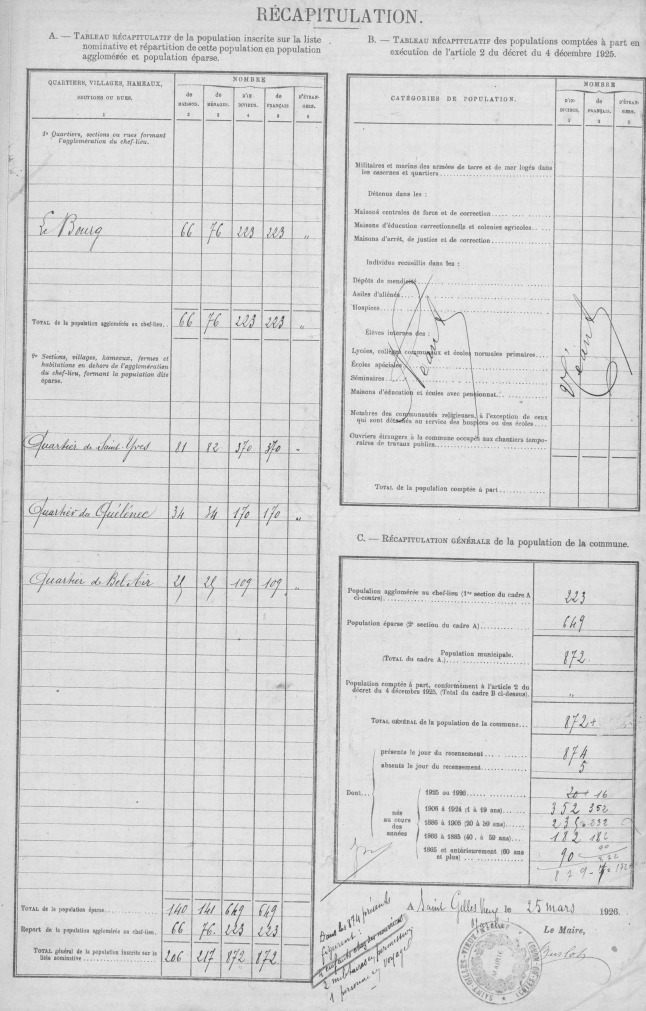 RÉCAPITULATION.
A. — TABLEAU RÉCAPITULATIF de la population inscrite sur la liste
nominative et répartition de cette population en population
agglomérée et population éparse.
QUARTIERS, VILLAGES, HAMEAUX,
SECTIONS OU RUES.
NOMBRE
de MAISONS. de MÉNAGES. D'IN- DIVIDUS. de FRANÇAIS. D'ÉTRAN- GERS.
1 2 3 4 5 6
1° Quartiers, sections ou rues formant
l'agglomération du chef-lieu.
Le Bourg 66 76 223 223 "
TOTAL de la population agglomérée au chef-lieu.. 66 76 223 223 "
2° Sections, villages, hameaux, fermes et
habitations en dehors de l'agglomération
du chef-lieu, formant la population dite
éparse.
Quartier de Saint-Yves 81 82 370 370 "
Quartier du Quélénec 34 34 170 170 "
Quartier de Bel Air 25 25 109 109 "
TOTAL de la population éparse.... 140 141 649 649
Report de la population agglomérée au chef-lieu. 66 76 223 223
TOTAL général de la population inscrite sur la
liste nominative.... 206 217 872 872
B. — TABLEAU RÉCAPITULATIF des populations comptées à part en
exécution de l'article 2 du décret du 4 décembre 1925.
CATÉGORIES DE POPULATION.
NOMBRE
D'IN- DIVIDUS. de FRANÇAIS. D'ÉTRAN- GERS.
Militaires et marins des armées de terre et de mer logés dans
les casernes et quartiers....
Détenus dans les :
Maisons centrales de force et de correction....
Maisons d'éducation correctionnelle et colonies agricoles....
Maisons d'arrêt, de justice et de correction....
Individus recueillis dans les :
Dépôts de mendicité....
Asiles d'aliénés....
Hospices....
Élèves internes des :
Lycées, collèges communaux et écoles normales primaires....
Écoles spéciales....
Séminaires....
Maisons d'éducation et écoles avec pensionnat....
Néant
Néant
Membres des communautés religieuses, à l'exception de ceux
qui sont détachés au service des hospices ou des écoles....
Ouvriers étrangers à la commune occupés aux chantiers tempo-
raires de travaux publics....
Total de la population comptée à part....
C. — RÉCAPITULATION GÉNÉRALE de la population de la commune.
Population agglomérée au chef-lieu (1re section du cadre A
ci-contre).... 223
Population éparse (2e section du cadre A).... 649
Population municipale.
(TOTAL du cadre A.).... 872
Population comptée à part, conformément à l'article 2 du
décret du 4 décembre 1925. (Total du cadre B ci-dessus). "
TOTAL GÉNÉRAL de la population de la commune... 872
présents le jour du recensement.... 874
absents le jour du recensement.... 5
Dont
nés
au cours
des
années
1925 ou 1926.... 20 + 16
1906 à 1924 (1 à 19 ans).... 352 352
1886 à 1905 (20 à 39 ans).... 232
1866 à 1885 (40 à 59 ans).... 182 182
1865 et antérieurement (60 ans
et plus).... 90
Dans les 874 présents
figurent :
2 militaires en permission
1 personne en voyage
A Saint Gilles Vieux Marché le 25 mars 1926.
Le Maire,
MAIRIE